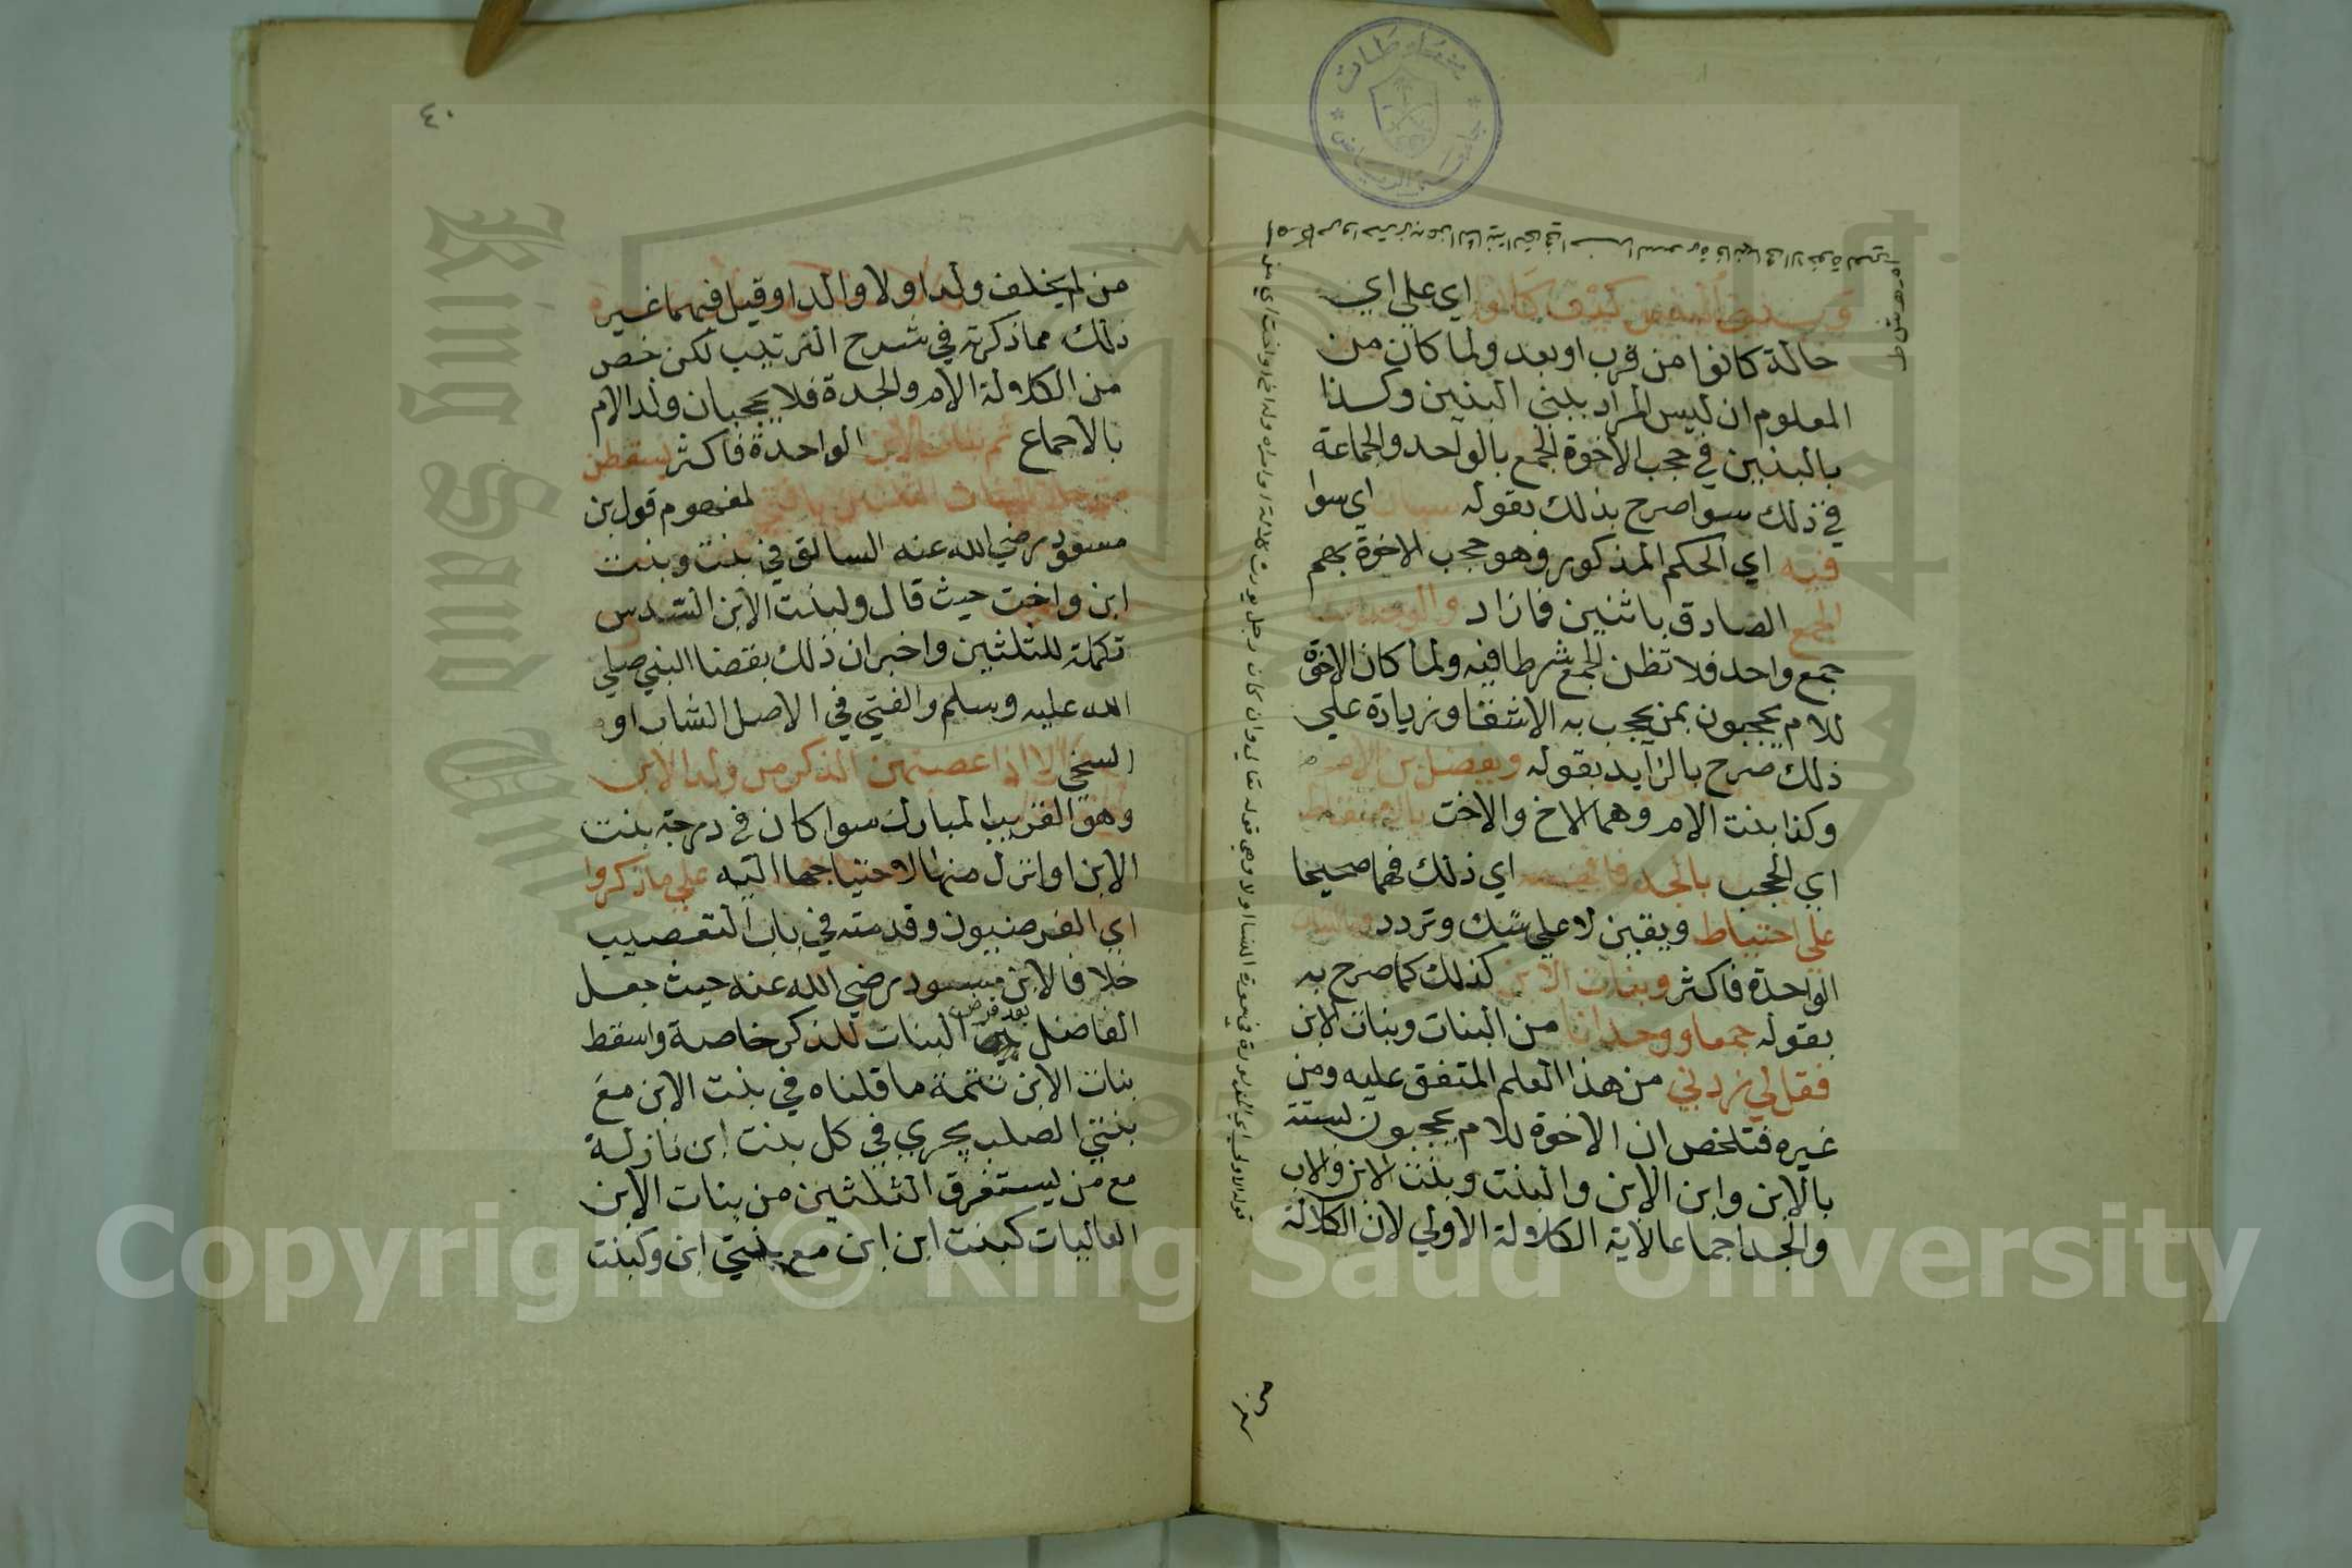 وببني البنين كيف كانوا اي على اي
حالة كانوا من قرب او بعد ولما كان من
المعلوم ان ليس المراد ببني البنين وكذا
بالبنين في حجب الاخوة الجمع بالواحد والجماعة
في ذلك سوا صرح بذلك بقوله سيان اي سوا
فيه اي الحكم المذكور وهو حجب الاخوة بهم
الجمع الصادق باثنين فما زاد والوحدان
جمع واحد فلا تظن الجمع شرطا فيه ولما كان الاخوة
للام يحجبون بمن يحجب به الاشقا وزيادة على
ذلك صرح بالزايد بقوله ويفضل بن الام
وكذا بنت الام وهما الاخ والاخت بالاسقاط
اي الحجب بالجد فافهمه اي ذلك فهما صحيحا
على احتياط ويقين لا على شك وتردد وبالبنات
الواحدة فاكثر وبنات الابن كذلك كما صرح به
بقوله جمعا ووحدانا من البنات وبنات الابن
فقل لي زدني من هذا العلم المتفق عليه ومن
غيره فتلخص ان الاخوة للام يحجبون بستة
بالابن وابن الابن والبنت وبنت الابن والاب
والجد اجماعا لاية الكلالة الاولى لان الكلالة
من لم يخلف ولدا ولا والدا وقيل فيهما غير
ذلك مما ذكرته في شرح الترتيب لكن خص
من الكلالة الام والجدة فلا يحجبان ولد الام
بالاجماع ثم بنات الابن الواحدة فاكثر يسقطن
متى حاز البنات الثلثين يا فتى لمفهوم قول بن
مسعود رضي الله عنه السابق في بنت وبنت
ابن واخت حيث قال ولبنت الابن السدس
تكملة للثلثين واخبر ان ذلك بقضا النبي صلى
الله عليه وسلم والفتى في الاصل الشاب او
السخي الا اذا عصبهن الذكر من ولد الابن
وهو القريب المبارك سوا كان في درجة بنت
الابن او انزل منها لاحتياجها اليه على ما ذكروا
اي الفرضيون وقدمته في باب التعصيب
خلافا لابن مسعود رضي الله عنه حيث جعل
الفاضل بعد فرض البنات للذكر خاصة واسقط
بنات الابن تتمة ما قلناه في بنت الابن مع
بنتي الصلب يجري في كل بنت ابن نازلة
مع من يستغرق الثلثين من بنات الابن
العاليات كبنت ابن ابن مع بنتي ابن وكبنت
٤٠
Copyright © King Saud University
King Saud University